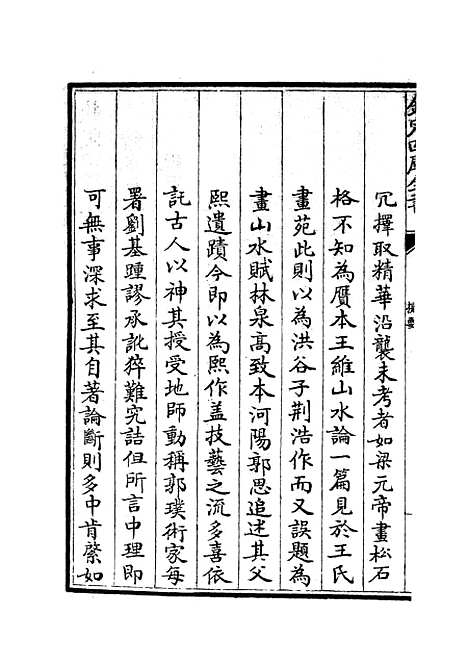 欽定四庫全書
提要
冗擇取精華沿襲未考者如梁元帝畫松石
格不知為贗本王維山水論一篇見於王氏
畫苑此則以為洪谷子荆浩作而又誤題為
畫山水賦林泉髙致本河陽郭思追述其父
熙遺蹟今即以為熙作盖技藝之流多喜依
託古人以神其授受地師動稱郭璞術家每
署劉基踵謬承訛猝難究詰但所言中理即
可無事深求至其自著論斷則多中肯綮如